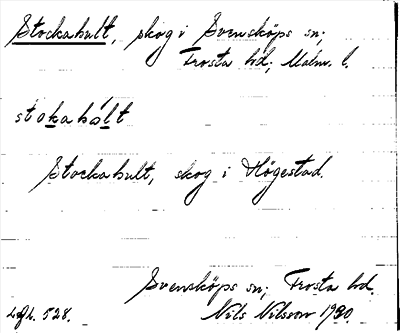 Stockahult, skog i Svensköps sn;
Frosta hd; Malm. l.
stokahòlt
Stockahult, skog i Högestad.
Svensköps sn; Frosta hd.
Nils Nilsson 1920
528.